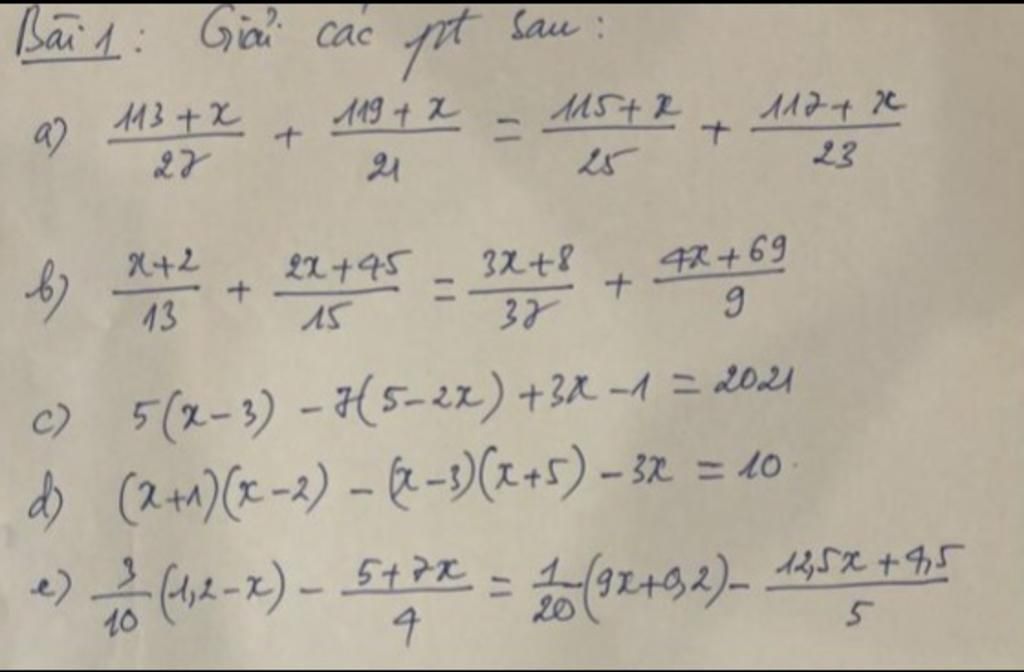 Bài 1: Giải các pt sau:
a) \frac{113+x}{27} + \frac{119+x}{21} = \frac{115+x}{25} + \frac{117+x}{23}
b) \frac{x+2}{13} + \frac{2x+45}{15} = \frac{3x+8}{37} + \frac{4x+69}{9}
c) 5(x-3) - 7(5-2x) + 3x - 1 = 2021
d) (x+1)(x-2) - (x-3)(x+5) - 3x = 10
e) \frac{3}{10}(1,2-x) - \frac{5+7x}{4} = \frac{1}{20}(9x+0,2) - \frac{12,5x+4,5}{5}